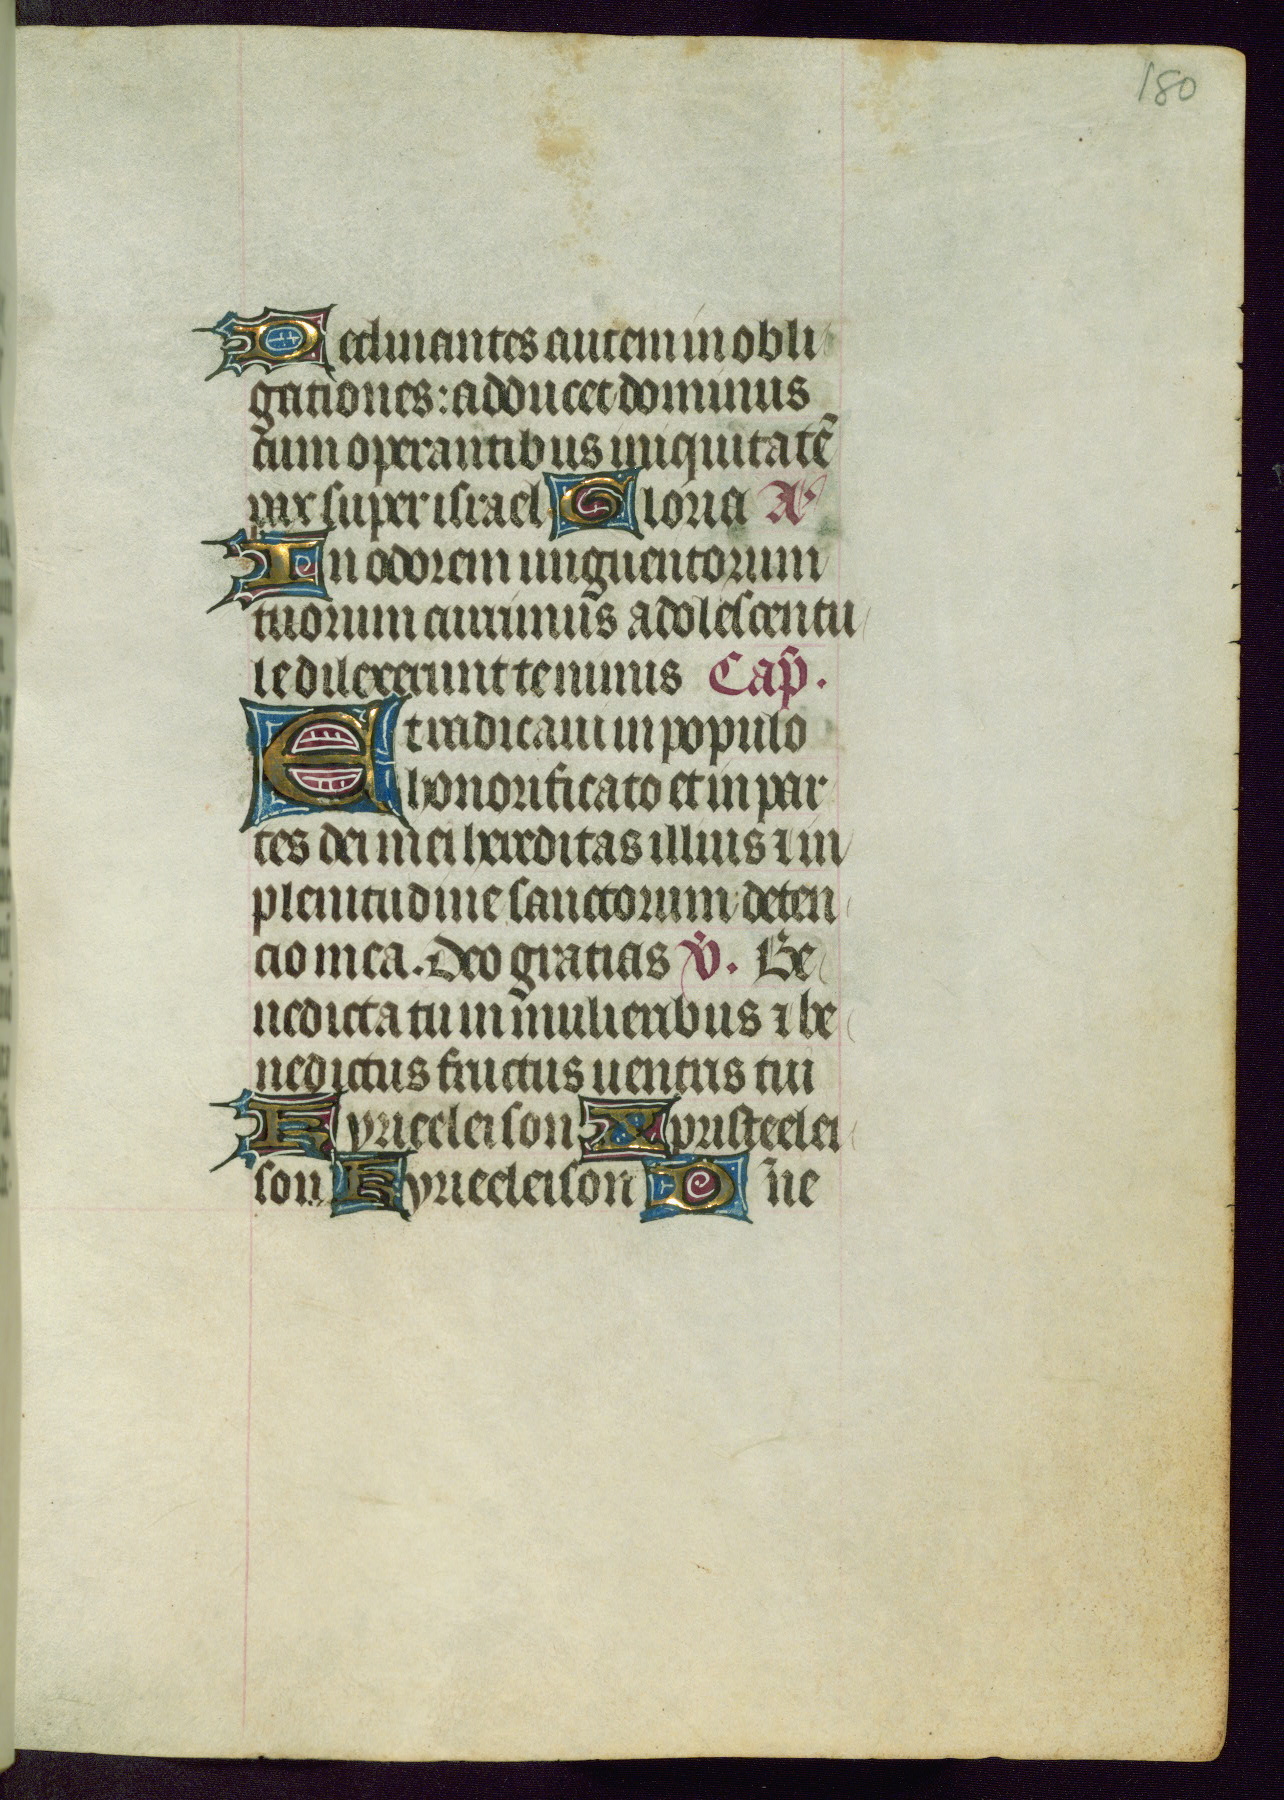 180
Declinantes autem in obli
gationes: adducet dominus
cum operantibus iniquitatē
pax super israel Gloria A·
In odorem unguentorum
tuorum currimus adolescentu
le dilexerunt te nimis Cap̄.
Et radicaui in populo
honorificato et in par
tes dei mei hereditas illius ⁊ in
plenitudine sanctorum deten
cio mea. Deo gratias V̄. Be
nedicta tu in mulieribus ⁊ be
nedictus fructus uentris tui
Kyrieeleison Xpristeelei
son Kyrieeleison Dn̄e